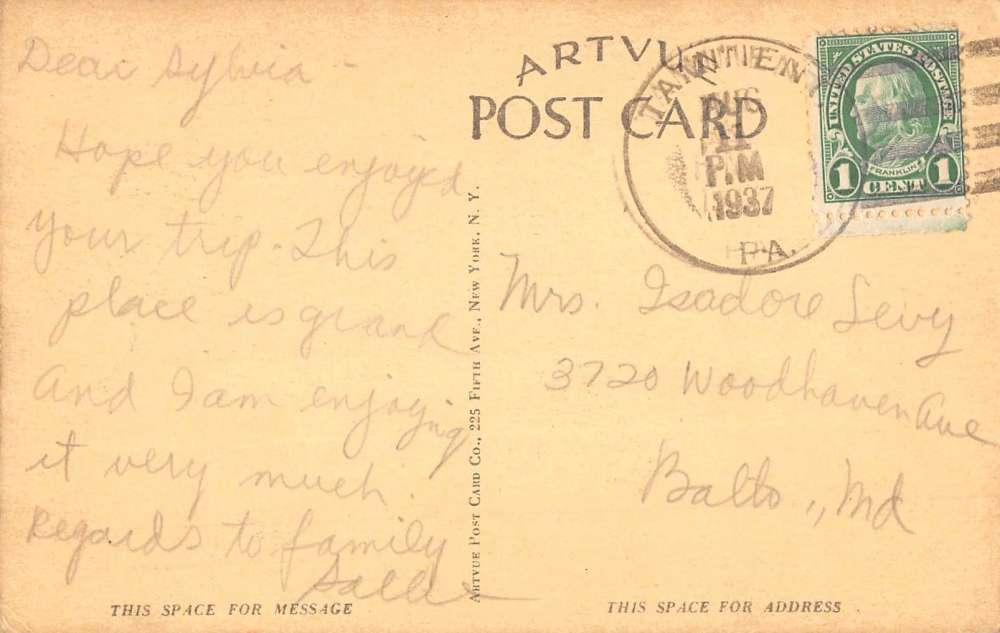 Dear Sylvia -
Hope you enjoyed
your trip. This
place is grand
and I am enjoying
it very much.
Regards to family
ARTVUE
POST CARD
AUG
11
P.M
1937
PA.
UNITED STATES POSTAGE
FRANKLIN
1 CENT 1
Mrs. Isadore Levy
3720 Woodhaven Ave
Balto., Md
ARTVUE POST CARD CO., 225 FIFTH AVE., NEW YORK, N. Y.
THIS SPACE FOR MESSAGE
THIS SPACE FOR ADDRESS